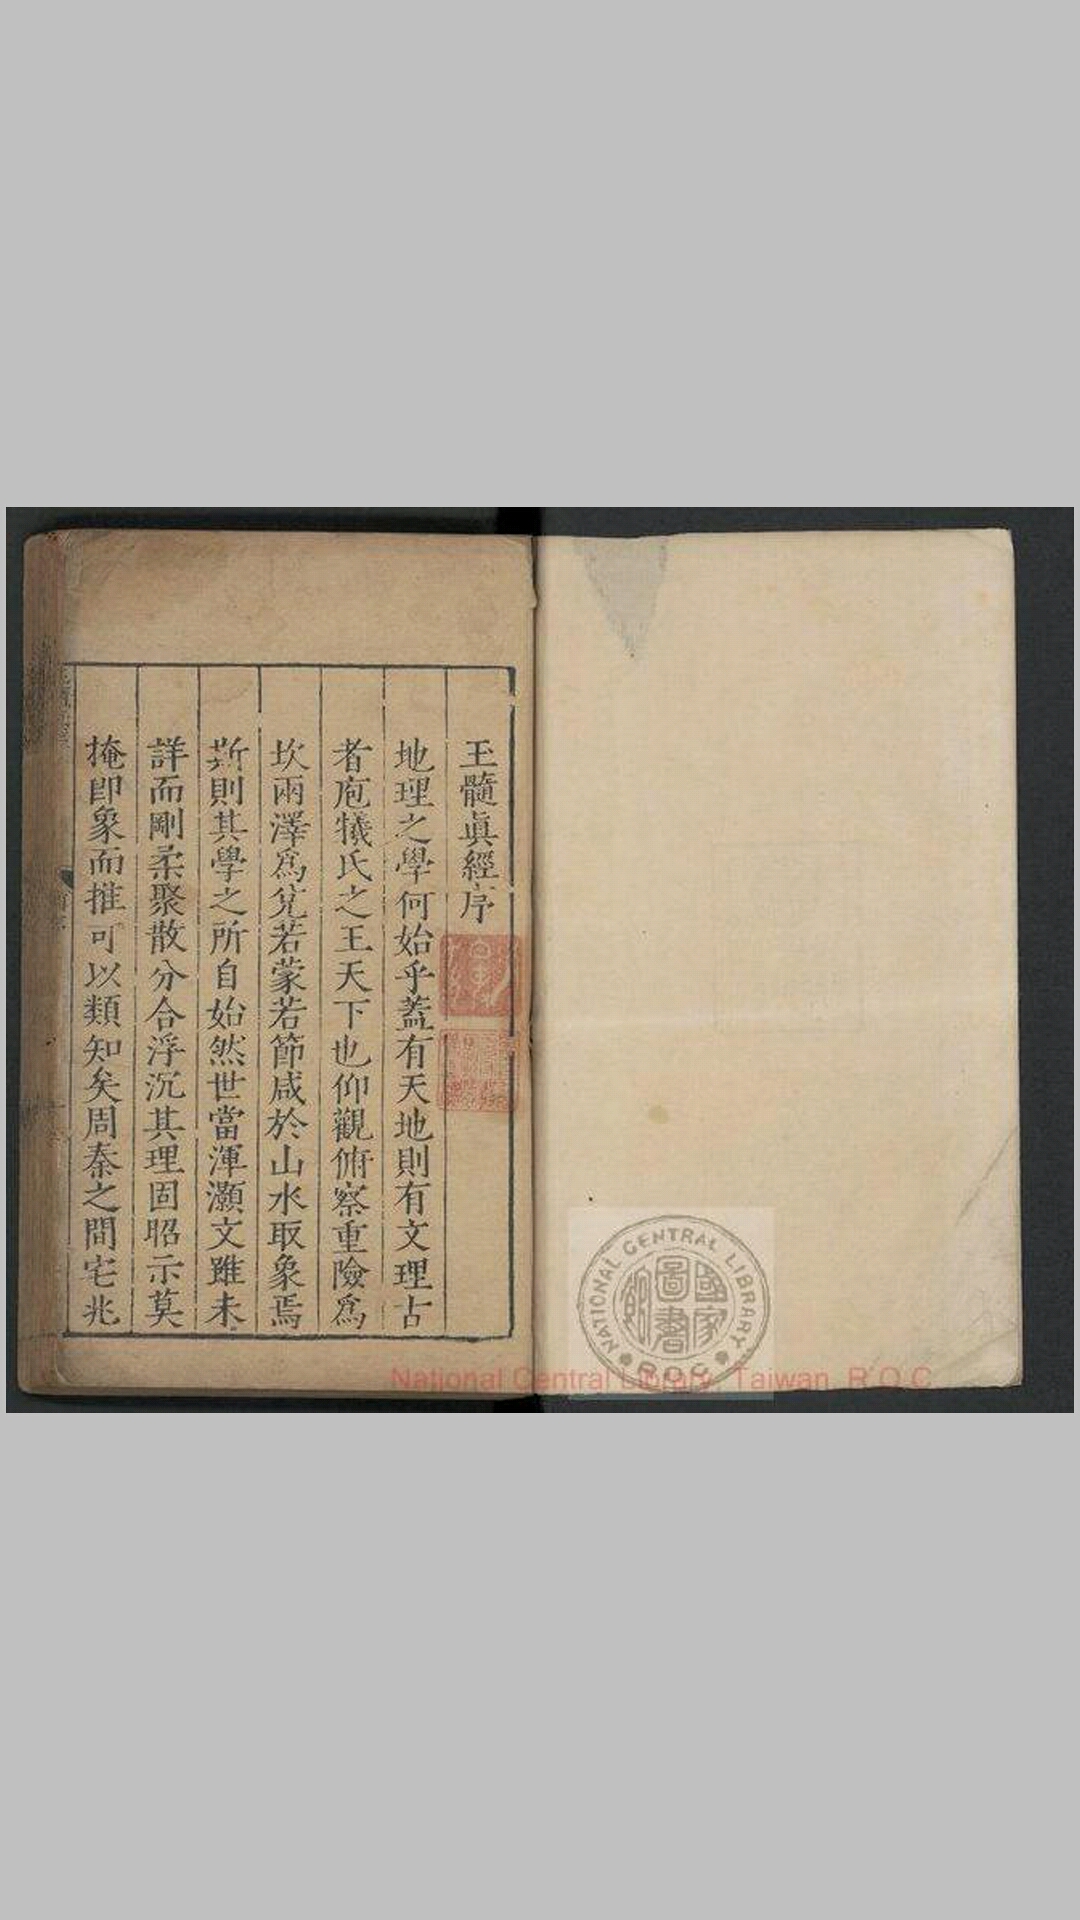 玉髓眞經序
地理之學何始乎蓋有天地則有文理古
者庖犧氏之王天下也仰觀俯察重險爲
坎兩澤爲兌若蒙若節咸於山水取象焉
斯則其學之所自始然世當渾灝文雖未
詳而剛柔聚散分合浮沉其理固昭示莫
掩卽象而推可以類知矣周秦之間宅兆
NATIONAL CENTRAL LIBRARY
國家
圖書
館
R.O.C
National Central Library, Taiwan R.O.C